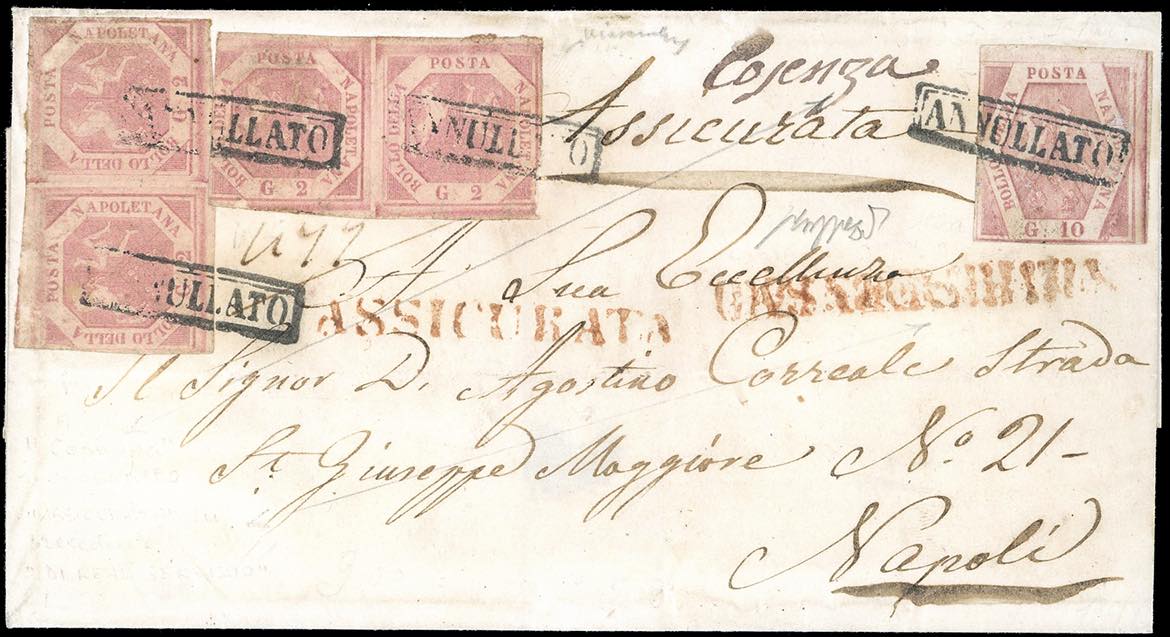 POSTA NAPOLETANA BOLLO DELLA G. 2
POSTA NAPOLETANA BOLLO DELLA G. 2
POSTA NAPOLETANA BOLLO DELLA G. 2
POSTA NAPOLETANA BOLLO DELLA G. 2
POSTA NAPOLETANA BOLLO DELLA G. 10
ANNULLATO
ANNULLATO
ANNULLATO
ANNULLATO
Cosenza
Assicurata
A Sua Eccellenza
ASSICURATA
Il Signor D. Agostino Correale Strada
St. Giuseppe Maggiore No. 21-
Napoli